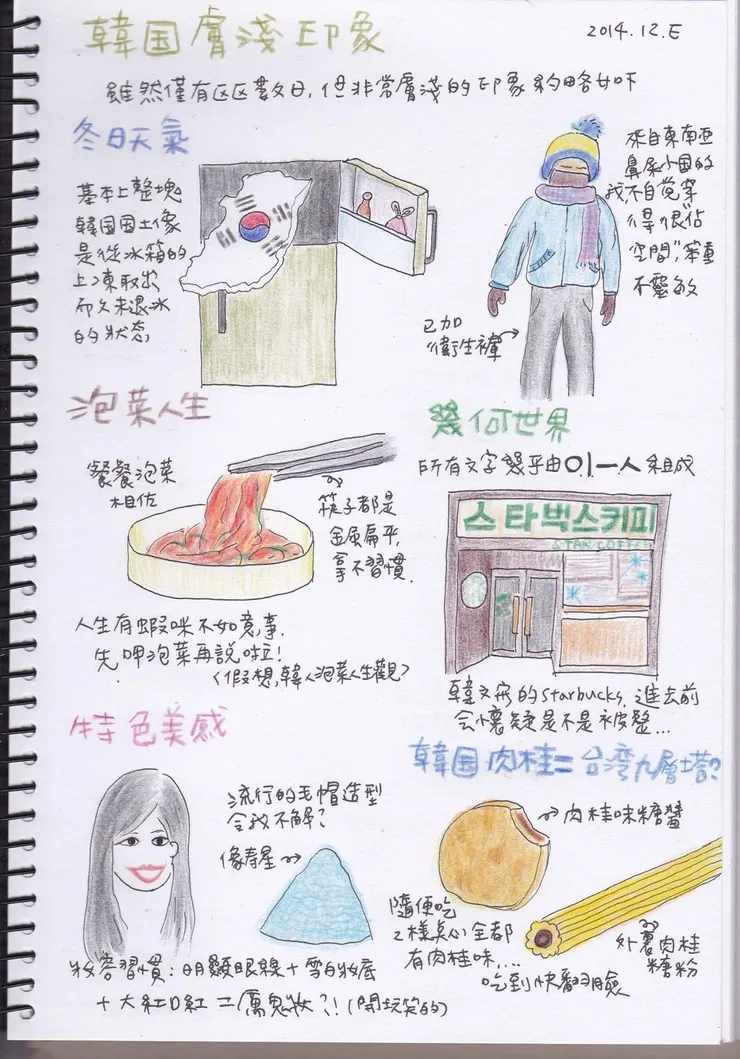 韓国膚淺印象
2014.12.E
雖然僅有区区數日,但非常膚淺的印象約略如下
冬日天氣
基本上整塊
韓国国土像
是從冰箱的
上凍取出
而久未退冰
的狀态
來自東南亞
鼻屎小国的
我不自覺穿
得很佔
空間,笨重
不靈敏
已加
衛生褲
泡菜人生
餐餐泡菜
相佐
筷子都是
金属扁平,
拿不習慣.
人生有蝦咪不如意事.
先呷泡菜再說啦!
〈假想,韓人泡菜人生觀〉
幾何世界
所有文字幾乎由O.1.一人組成
스타벅스커피
STAR COFFEE
韓文字的Starbucks,進去前
会懷疑是不是被整...
特色美感
流行的毛帽造型
令我不解?
像寿星
妝容習慣:明顯眼線+雪白妝底
+大紅口紅=厲鬼妝?!(開玩笑的)
韓国肉桂=台湾九層塔?
肉桂味糖醬
隨便吃
2樣点心全都
有肉桂味....
吃到快翻臉
外裹肉桂
糖粉